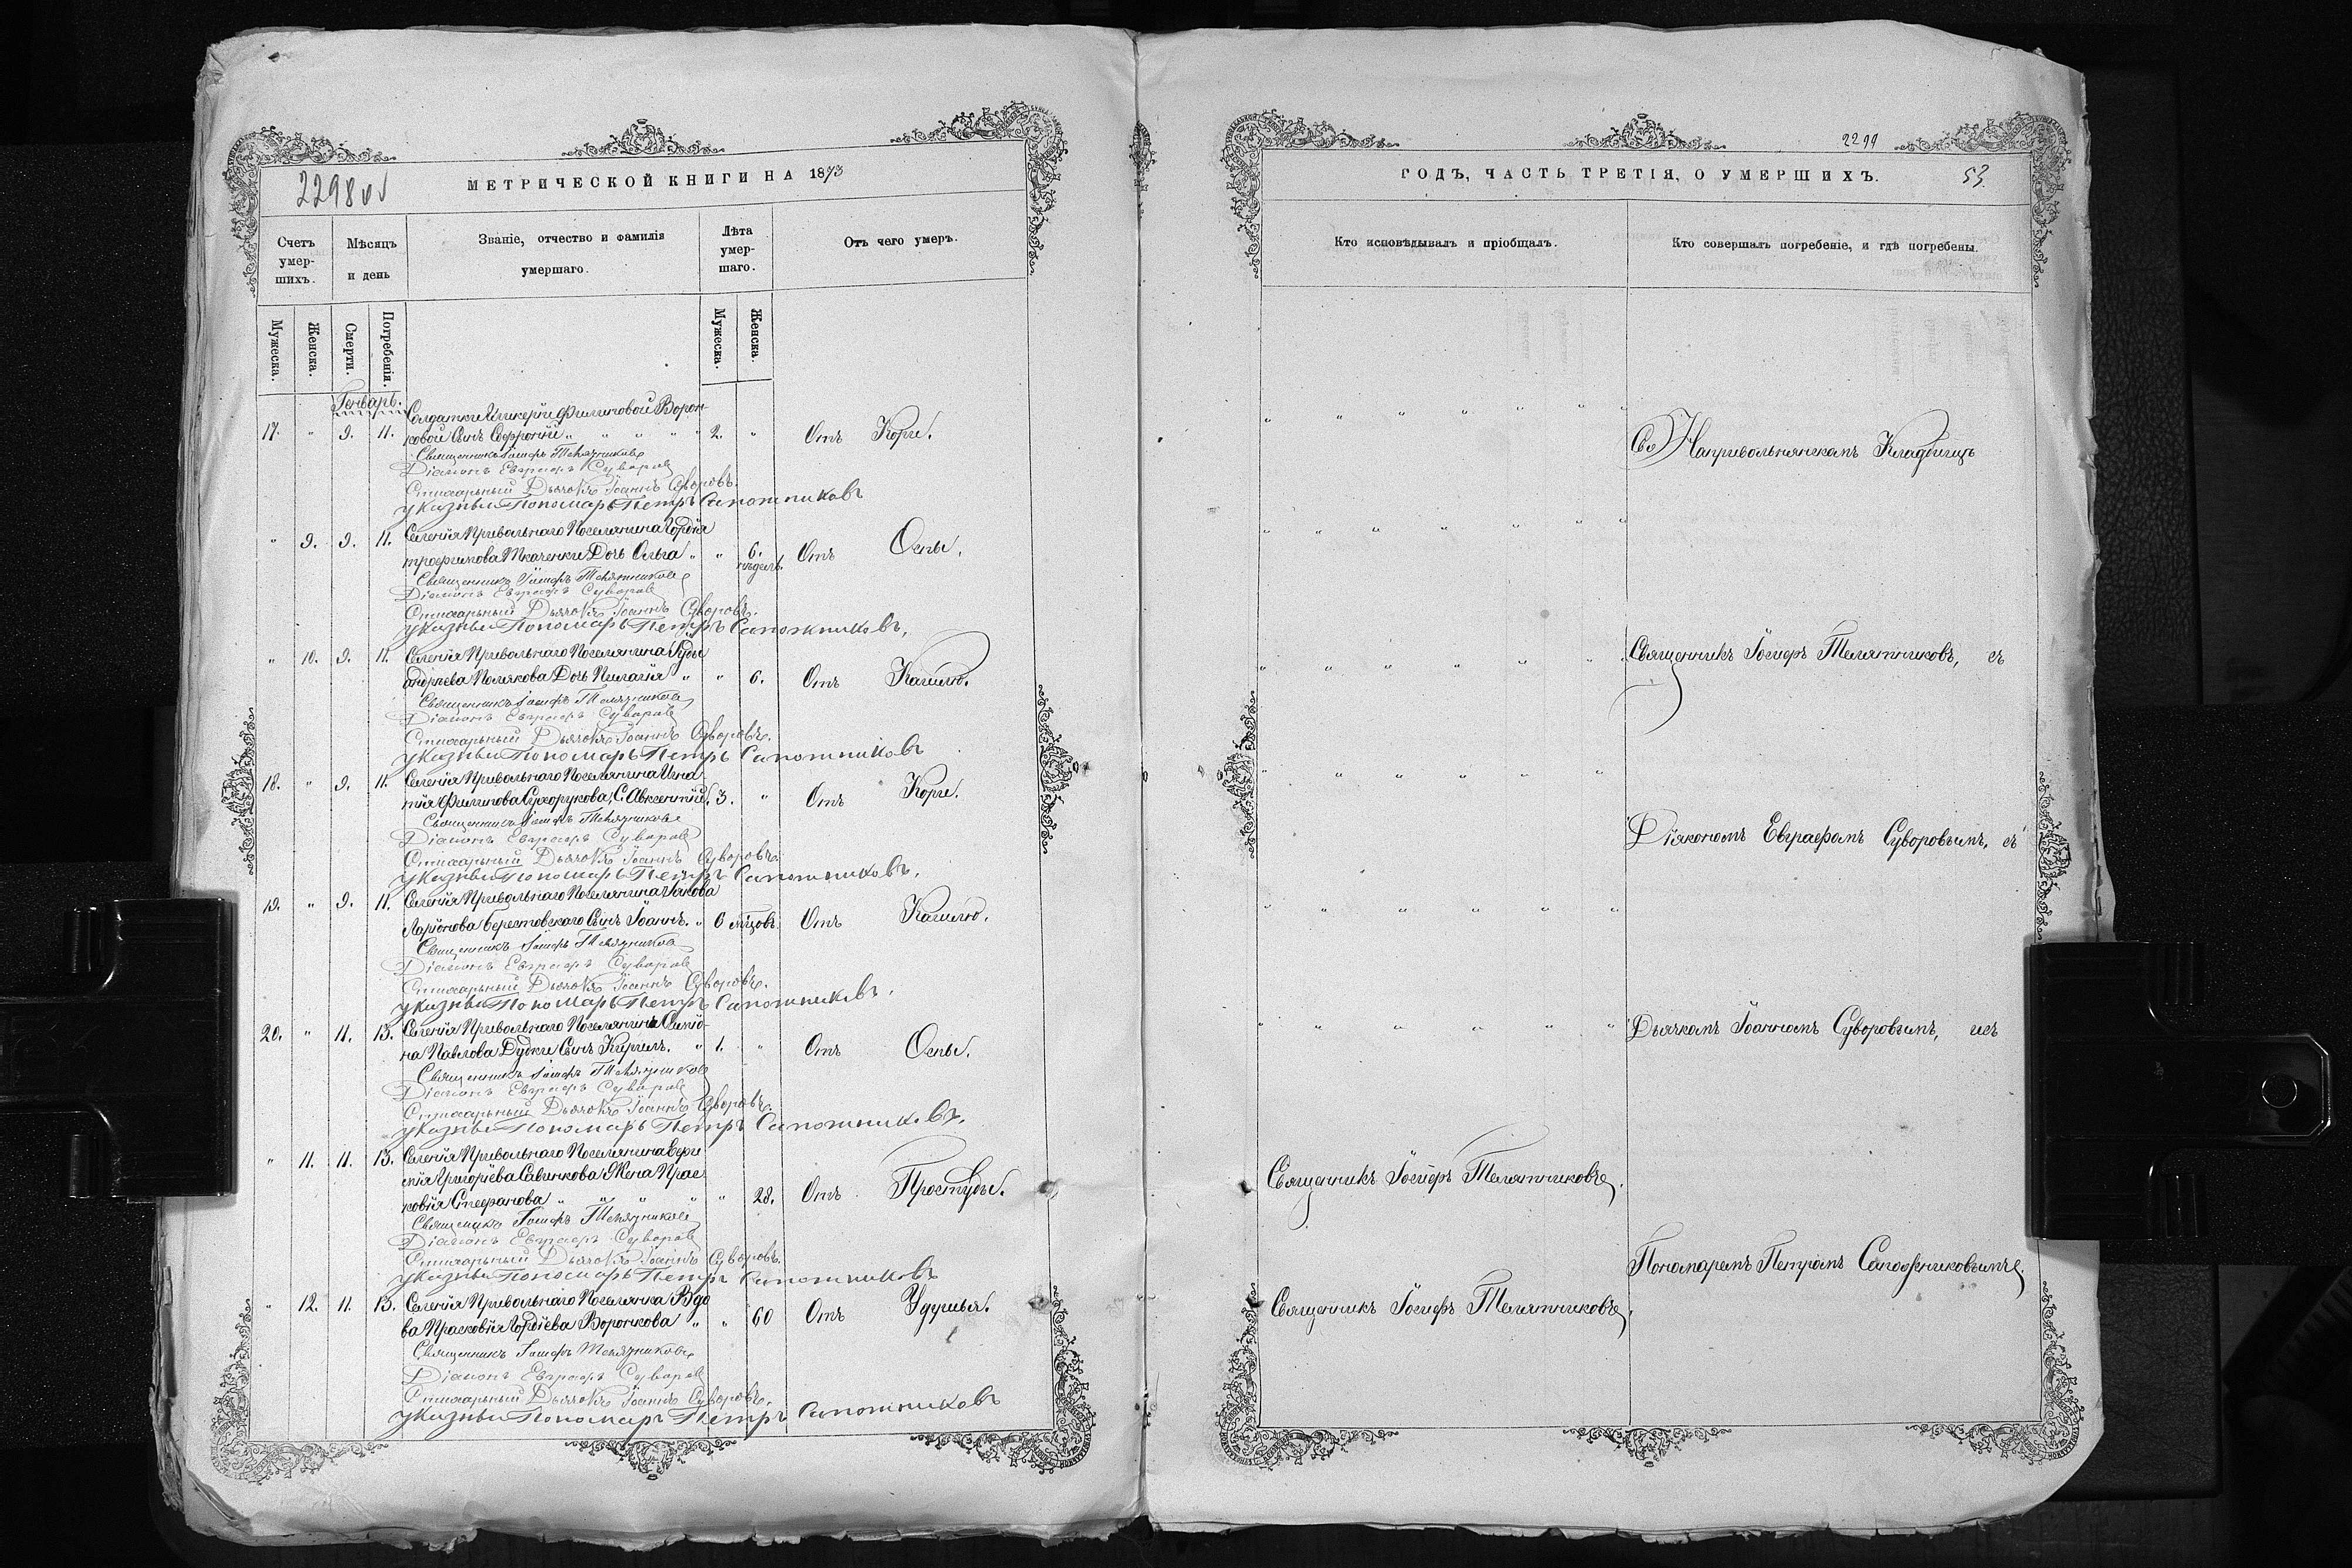 2298об
МЕТРИЧЕСКОЙ КНИГИ НА 1873
Счетъ умер-шихъ.
Мѣсяцъ и день
Званіе, отчество и фамилія умершаго.
Лѣта умер-шаго.
Отъ чего умеръ.
Мужеска.
Женска.
Смерти.
Погребенія.
Мужеска.
Женска.
Генварь.
Солдатки Гликеріи Филиповой Ворон-
17. " 9. 11. ковой Сынъ Софроній " " " " " 2. " Отъ Коры.
Священникъ Іосифъ Телятниковъ
Діаконъ Евграфъ Суворовъ
Стихарный Дьячокъ Іоаннъ Суворовъ.
указный Пономарь Петръ Сапожниковъ
" 9. 9. 11. Селенія Привольнаго Поселянина
трофимова Ткаченки Дочь Ольга " " 6. недѣль. Отъ Оспы.
Священникъ Іосифъ Телятниковъ
Діаконъ Евграфъ Суворовъ
Стихарный Дьячокъ Іоаннъ Суворовъ.
указный Пономарь Петръ Сапожниковъ.
" 10. 9. 11. Селенія Привольнаго Поселянина
андреева Полякова Дочь Пелагія " " 6. Отъ Кашлю.
Священникъ Іосифъ Телятниковъ
Діаконъ Евграфъ Суворовъ
Стихарный Дьячокъ Іоаннъ Суворовъ.
указный Пономарь Петръ Сапожниковъ
18. " 9. 11. Селенія Привольнаго Поселянина Игна
тія Филипова Сухорукова, С. Авксентій. 3. " Отъ Коры.
Священникъ Іосифъ Телятниковъ
Діаконъ Евграфъ Суворовъ
Стихарный Дьячокъ Іоаннъ Суворовъ
указный Пономарь Петръ Сапожниковъ.
19. " 9. 11. Селенія Привольнаго Поселянина Іакова
Ларіонова Берестовскаго Сынъ Іоаннъ. " 6 мѣсцовъ. Отъ Кашлю.
Священникъ Іосифъ Телятниковъ
Діаконъ Евграфъ Суворовъ
Стихарный Дьячокъ Іоаннъ Суворовъ.
указный Пономарь Петръ Сапожниковъ.
20. " 11. 13. Селенія Привольнаго Поселянина Симіо-
на Павлова Дудки Сынъ Кирилъ. " 1. " Отъ Оспы.
Священникъ Іосифъ Телятниковъ
Діаконъ Евграфъ Суворовъ
Стихарный Дьячокъ Іоаннъ Суворовъ.
указный Пономарь Петръ Сапожниковъ.
" 11. 11. 13. Селенія Привольнаго Поселянина
Григоріева Савинкова Жена Прас-
ковія Стефанова " " " " " 28. Отъ Простуды.
Священникъ Іосифъ Телятниковъ
Діаконъ Евграфъ Суворовъ
Стихарный Дьячокъ Іоаннъ Суворовъ.
указный Пономарь Петръ Сапожниковъ
" 12. 11. 13. Селенія Привольнаго Поселянка Вдо
ва Прасковія Гордіева Воронкова " " 60 Отъ Удушья.
Священникъ Іосифъ Телятниковъ
Діаконъ Евграфъ Суворовъ
Стихарный Дьячокъ Іоаннъ Суворовъ.
указный Пономарь Петръ Сапожниковъ
2299
ГОДЪ, ЧАСТЬ ТРЕТІЯ, О УМЕРШИХЪ.
53.
Кто исповѣдывалъ и пріобщалъ.
Кто совершалъ погребеніе, и гдѣ погребены.
" " " " " " "
На Кладбищѣ
" " " " " "
Священникъ Іосифъ Телятниковъ, съ
" " " " " "
" " " " " "
Діякономъ Евграфомъ Суворовымъ, съ
" " " " " "
" " " " " "
Дьячкомъ Іоанномъ Суворовымъ, и съ
Священникъ Іосифъ Телятниковъ.
Пономаремъ Петромъ Сапожниковымъ.
Священникъ Іосифъ Телятниковъ.